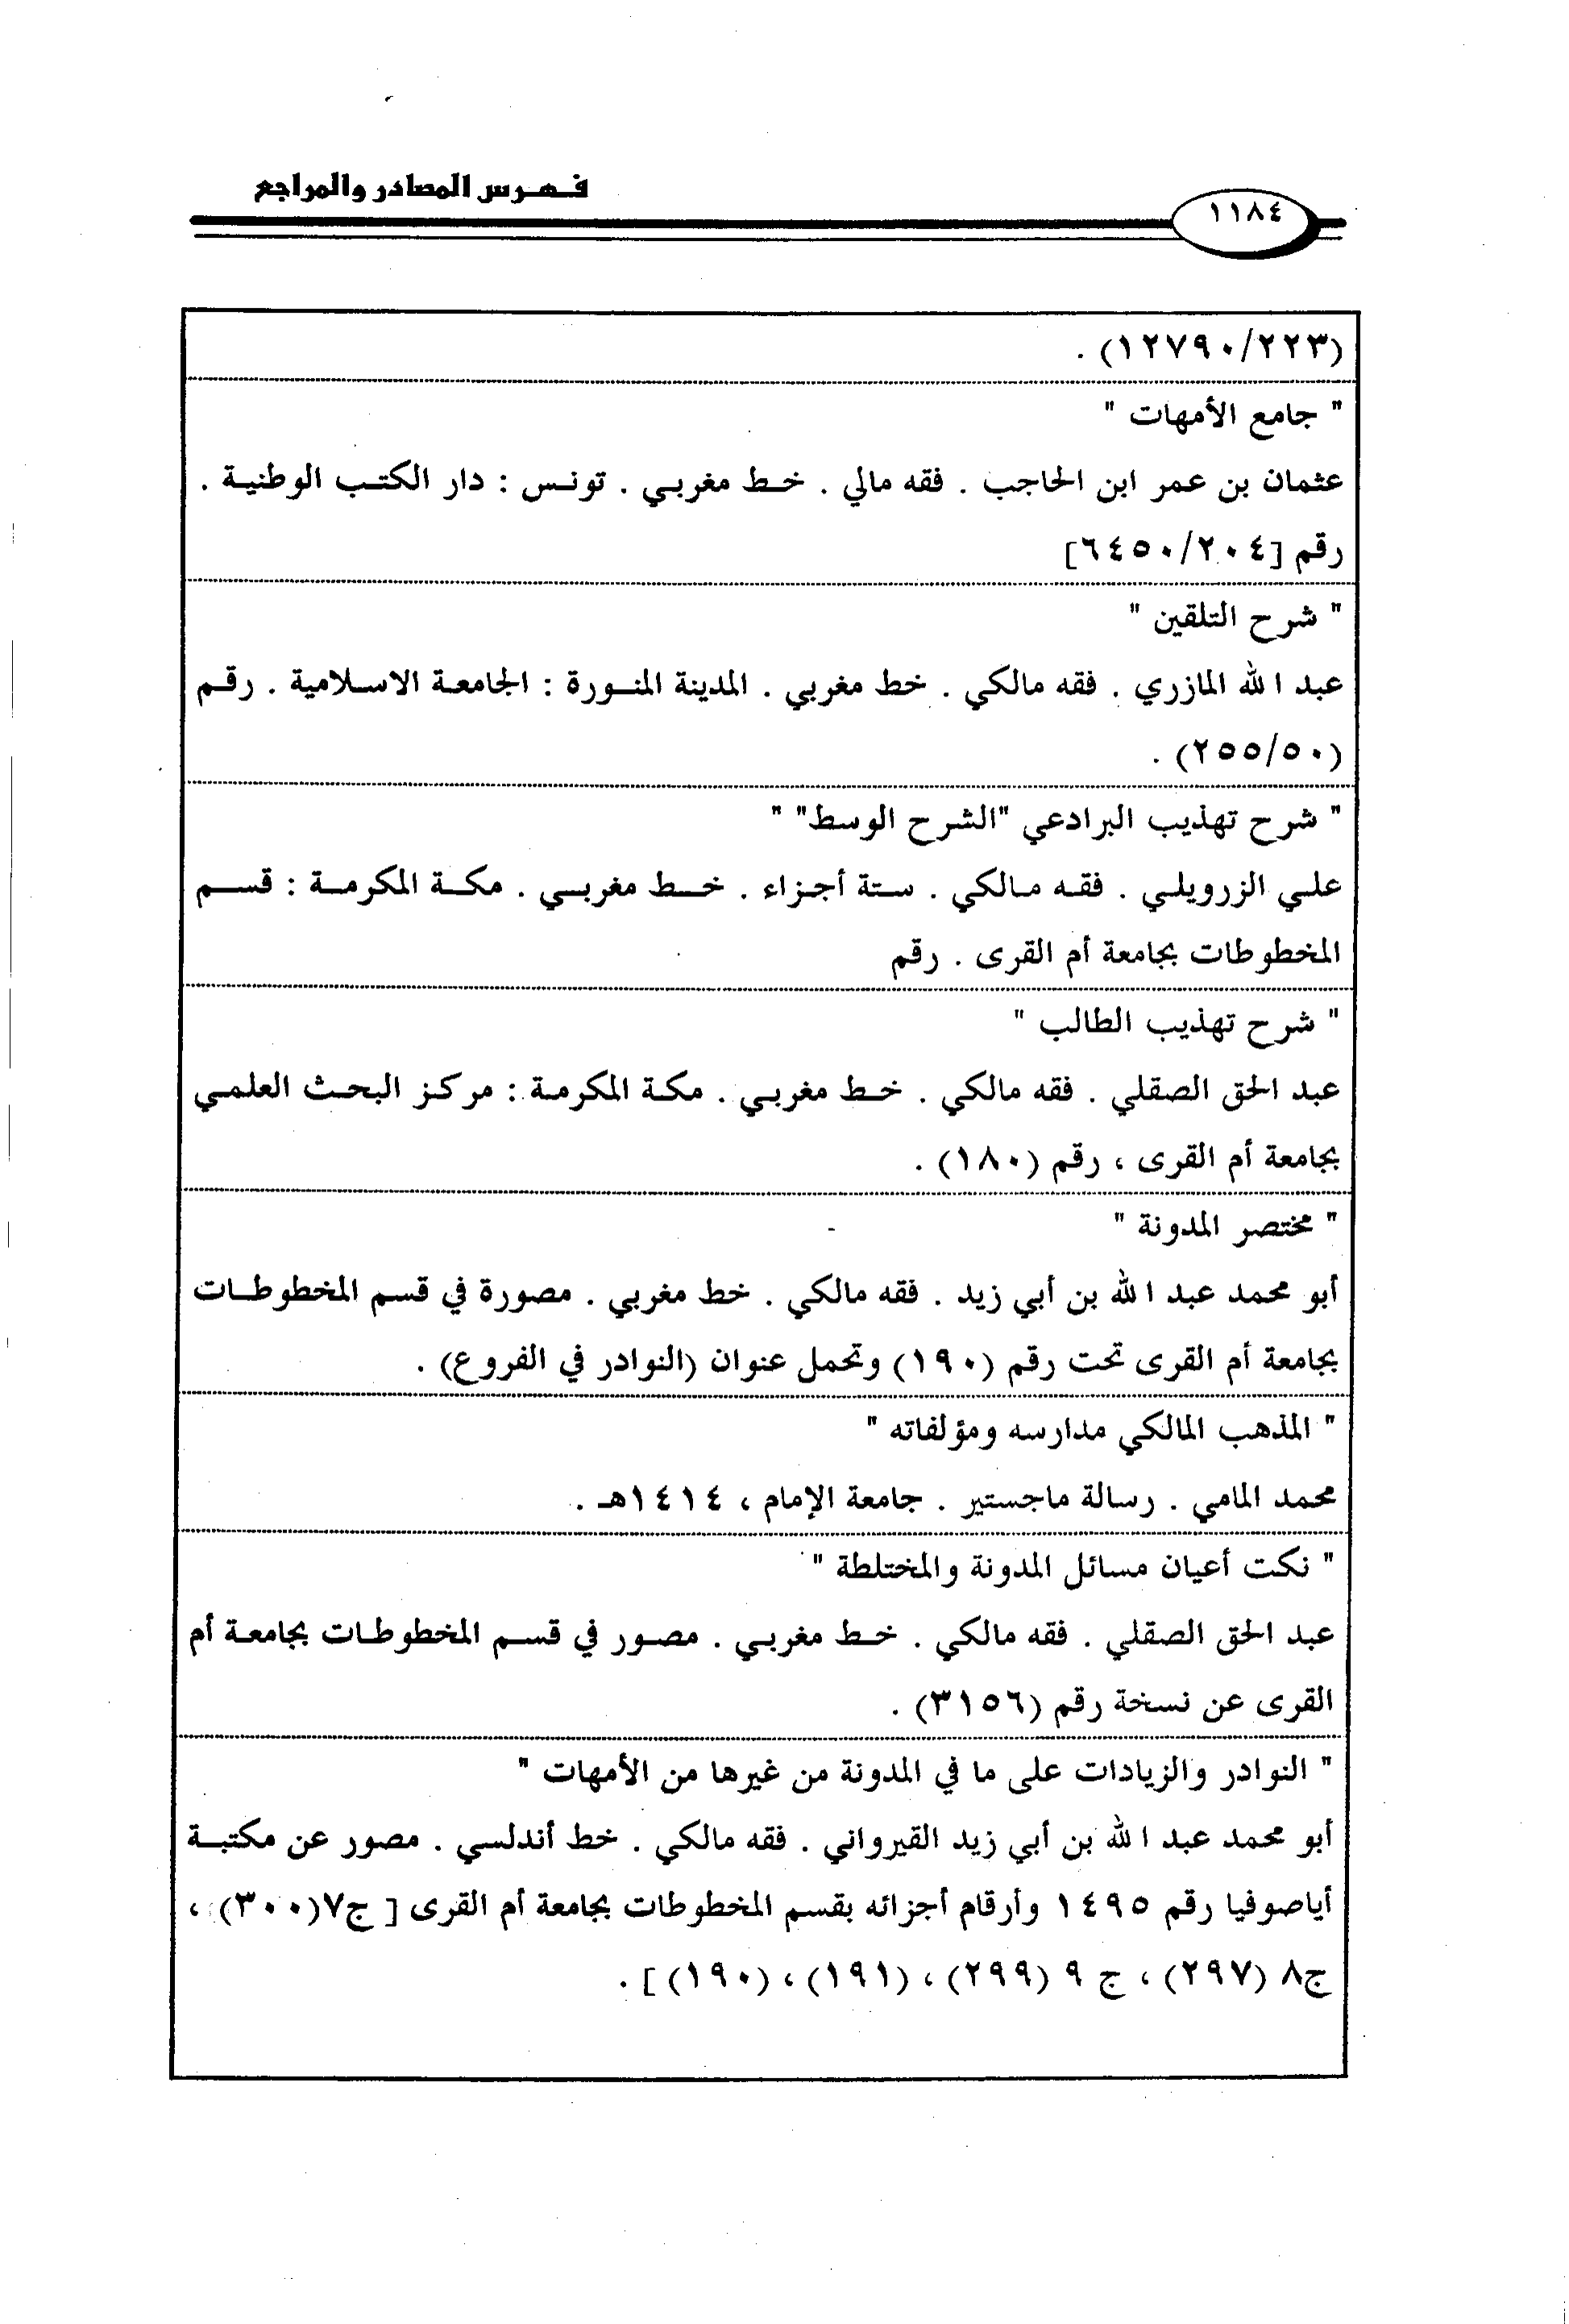 فهرس المصادر والمراجع
١١٨٤
(١٢٧٩٠/٢٢٣) .
" جامع الأمهات "
عثمان بن عمر ابن الحاجب . فقه مالي . خط مغربي . تونس : دار الكتب الوطنية .
رقم [٦٤٥٠/٢٠٤]
" شرح التلقين "
عبد الله المازري . فقه مالكي . خط مغربي . المدينة المنورة : الجامعة الاسلامية . رقم
(٢٥٥/٥٠) .
" شرح تهذيب البرادعي "الشرح الوسط" "
علي الزرويلي . فقه مالكي . ستة أجزاء . خط مغربي . مكة المكرمة : قسم
المخطوطات بجامعة أم القرى . رقم
" شرح تهذيب الطالب "
عبد الحق الصقلي . فقه مالكي . خط مغربي . مكة المكرمة : مركز البحث العلمي
بجامعة أم القرى ، رقم (١٨٠) .
" مختصر المدونة "
أبو محمد عبد الله بن أبي زيد . فقه مالكي . خط مغربي . مصورة في قسم المخطوطات
بجامعة أم القرى تحت رقم (١٩٠) وتحمل عنوان (النوادر في الفروع) .
" المذهب المالكي مدارسه ومؤلفاته "
محمد المامي . رسالة ماجستير . جامعة الإمام ، ١٤١٤هـ .
" نكت أعيان مسائل المدونة والمختلطة "
عبد الحق الصقلي . فقه مالكي . خط مغربي . مصور في قسم المخطوطات بجامعة أم
القرى عن نسخة رقم (٣١٥٦) .
" النوادر والزيادات على ما في المدونة من غيرها من الأمهات "
أبو محمد عبد الله بن أبي زيد القيرواني . فقه مالكي . خط أندلسي . مصور عن مكتبة
أياصوفيا رقم ١٤٩٥ وأرقام أجزائه بقسم المخطوطات بجامعة أم القرى [ ج٧(٣٠٠) ،
ج٨ (٢٩٧) ، ج ٩ (٢٩٩) ، (١٩١) ، (١٩٠) ] .